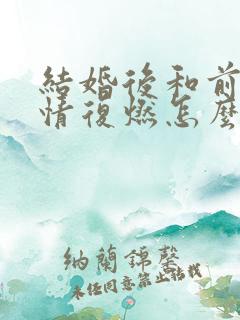 結婚後和前
情復燃怎麼
納蘭錦馨
未经同意禁止转载